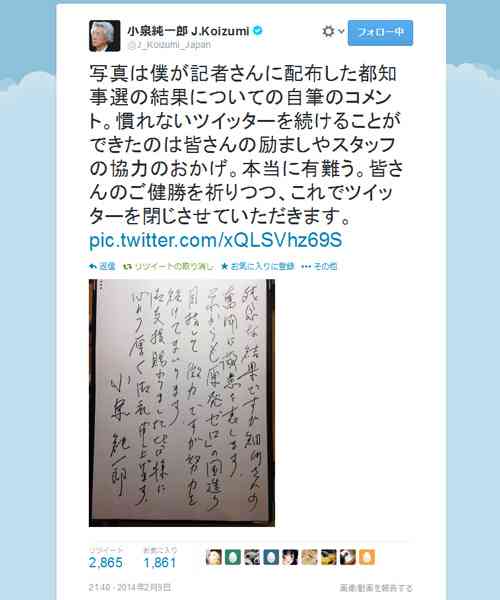 小泉純一郎 J.Koizumi
@J_Koizumi_Japan
フォロー中
写真は僕が記者さんに配布した都知
事選の結果についての自筆のコメン
ト。慣れないツイッターを続けることが
できたのは皆さんの励ましやスタッフ
の協力のおかげ。本当に有難う。皆さ
んのご健勝を祈りつつ、これでツイッ
ターを閉じさせていただきます。
pic.twitter.com/xQLSVhz69S
返信 リツイートの取り消し お気に入りに登録 その他
残念な結果ですが細川さんの
奮闘に敬意を表します。
これからも「原発ゼロ」の国造りを
目指して微力ですが努力を
続けてまいります。
御支援賜わりました皆様に
心より厚く御礼申し上げます。
小泉純一郎
リツイート お気に入り
2,865 1,861
21:40 - 2014年2月9日
画像/動画を報告する